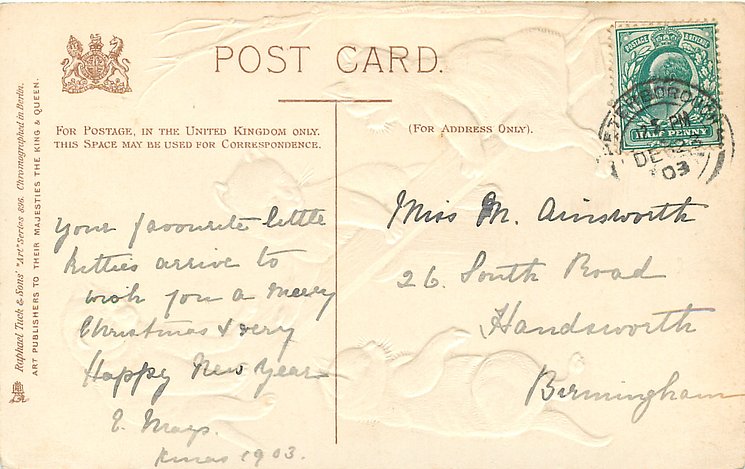 POST CARD.
FOR POSTAGE, IN THE UNITED KINGDOM ONLY.
THIS SPACE MAY BE USED FOR CORRESPONDENCE.
(FOR ADDRESS ONLY).
Raphael Tuck & Sons' "Art" Series 896. Chromographed in Berlin.
ART PUBLISHERS TO THEIR MAJESTIES THE KING & QUEEN.
POSTAGE & REVENUE
HALF PENNY
PM
DE 23
03
Your favourite little
Kitties arrive to
wish you a merry
Christmas & very
Happy New Year
E. Mays.
Xmas 1903.
Miss M. Ainsworth
26. South Road
Handsworth
Birmingham